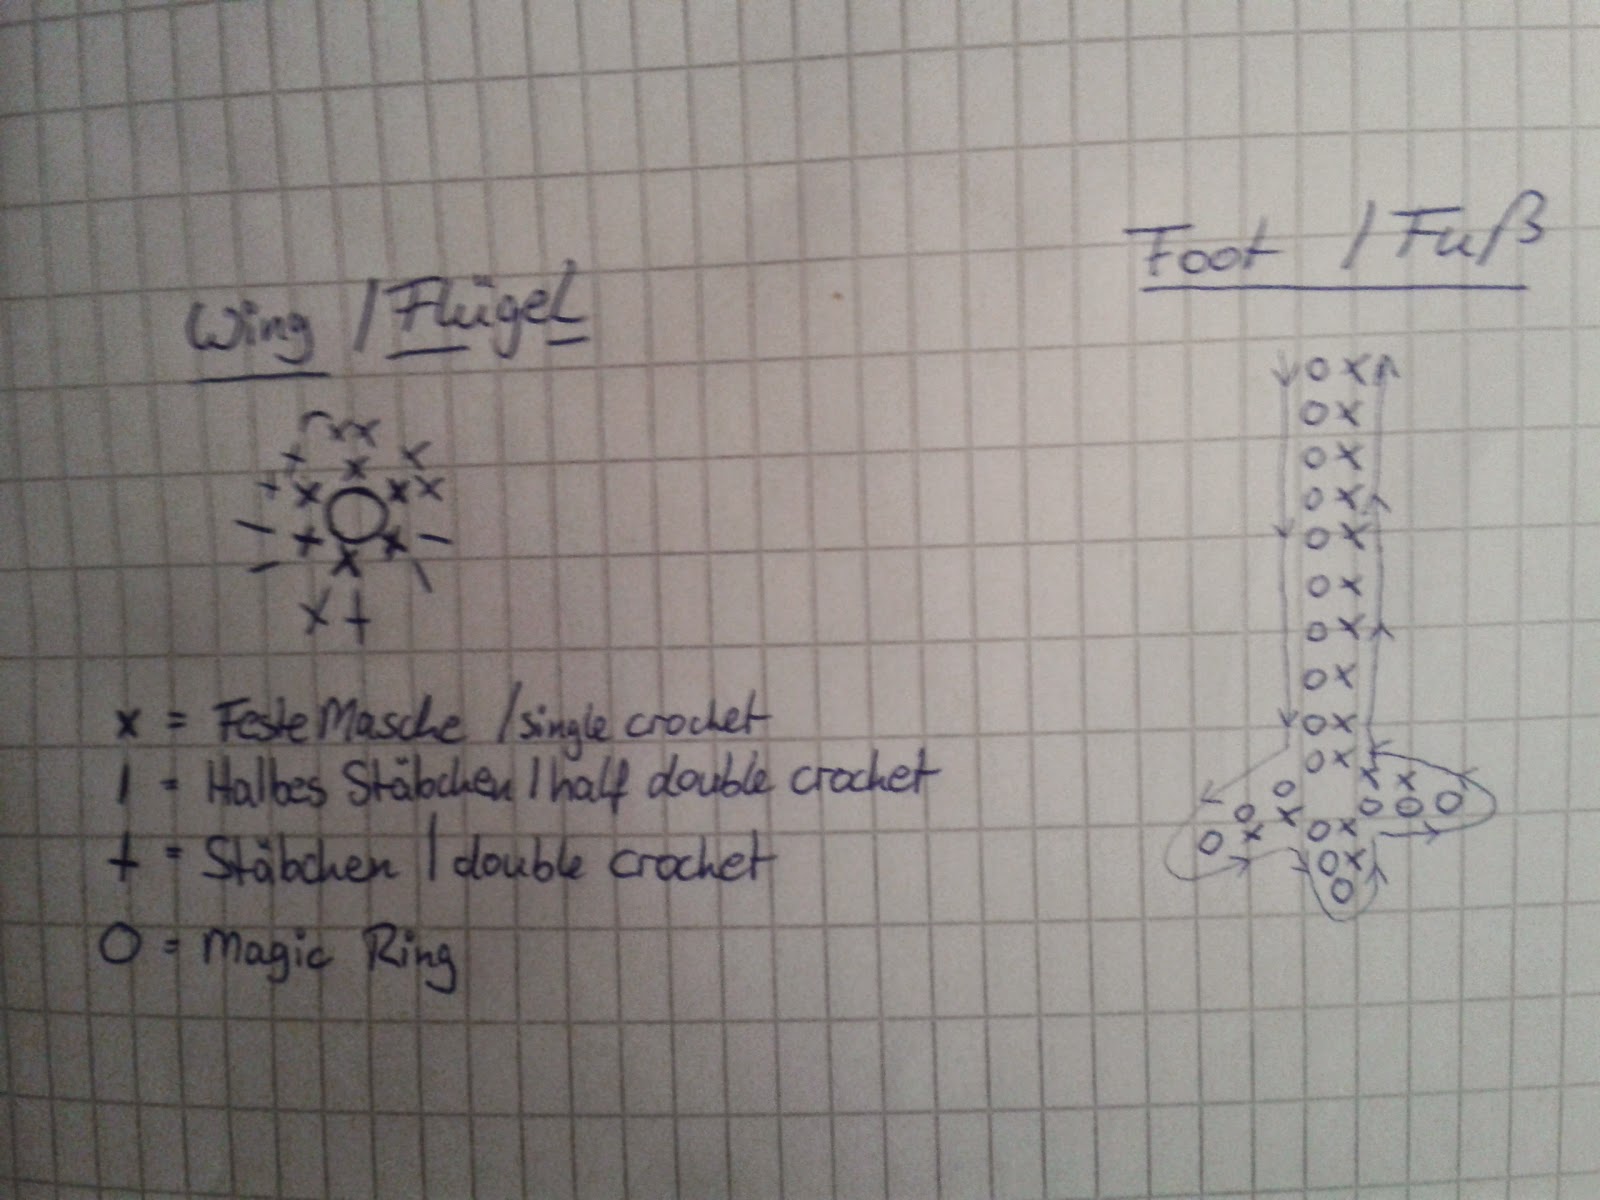 Wing / Flügel
Foot / Fuß
x = Feste Masche / single crochet
| = Halbes Stäbchen / half double crochet
† = Stäbchen / double crochet
O = Magic Ring
o x
o x
o x
o x
o x
o x
o x
o x
o x
o x